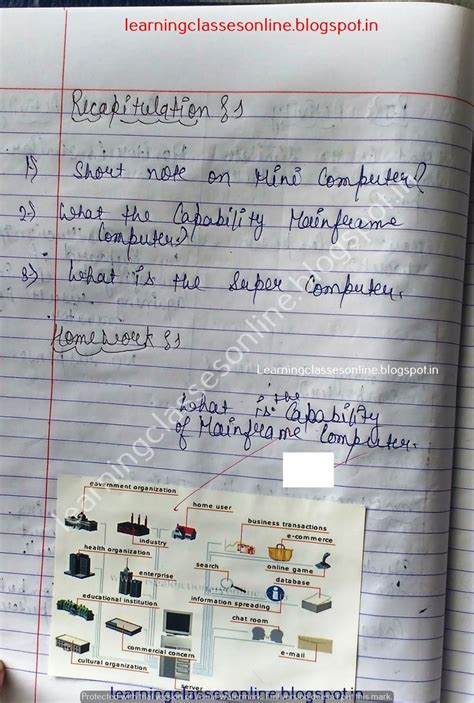 learningclassesonline.blogspot.in
Recapitulation :-
1) Short note on Mini Computer?
2) What the Capability Mainframe
Computer?
3) What is the Super Computer.
Homework :-
Learningclassesonline.blogspot.in
What is the Capability
of Mainframe Computer.
learningclassesonline.blogspot.in
government organization
home user
industry
business transactions
e-commerce
health organization
enterprise
search
online game
database
educational institution
information spreading
chat room
commercial concern
cultural organization
e-mail
server
learningclassesonline.blogspot.in